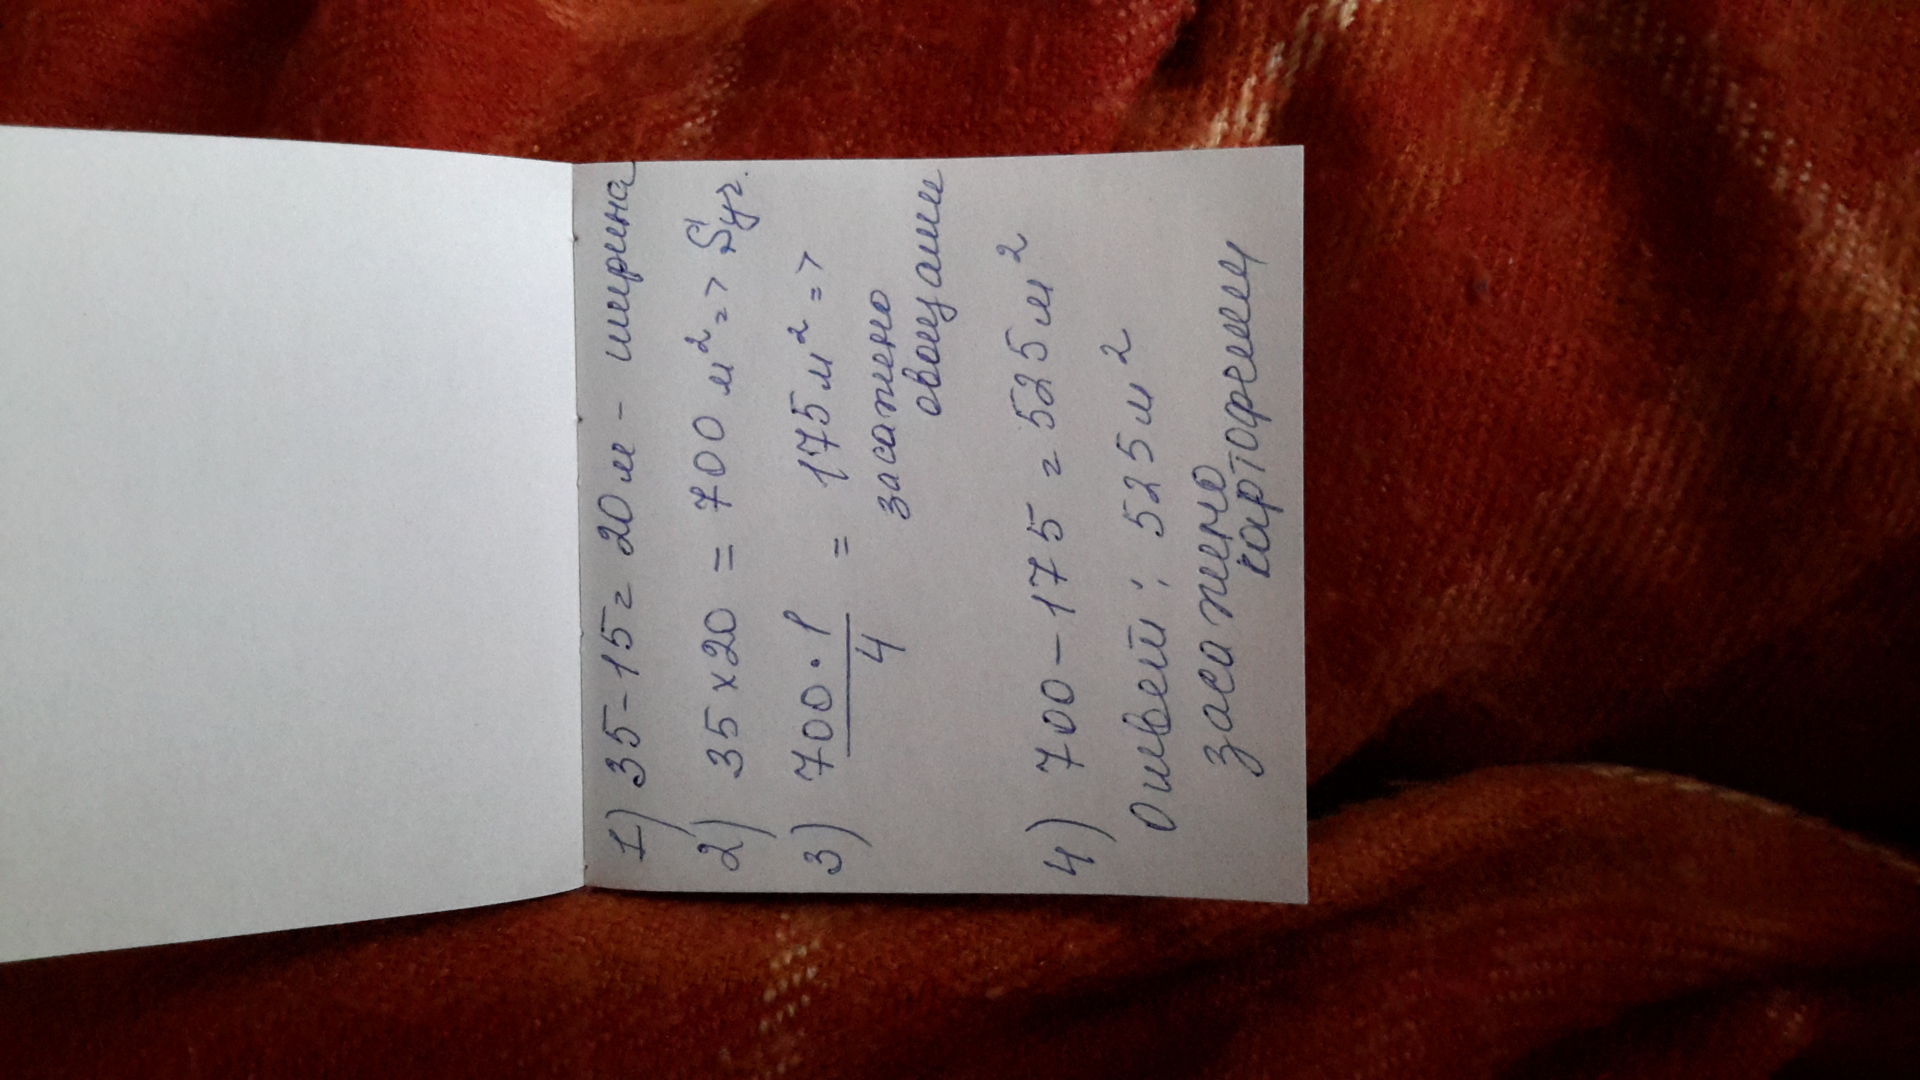 1) 35-15= 20м - ширина
2) 35×20 = 700 м² => Sуч.
3) 700·1/4 = 175м² =>
засажено
овощами
4) 700-175 = 525м²
Ответ: 525м²
засажено
картофелем